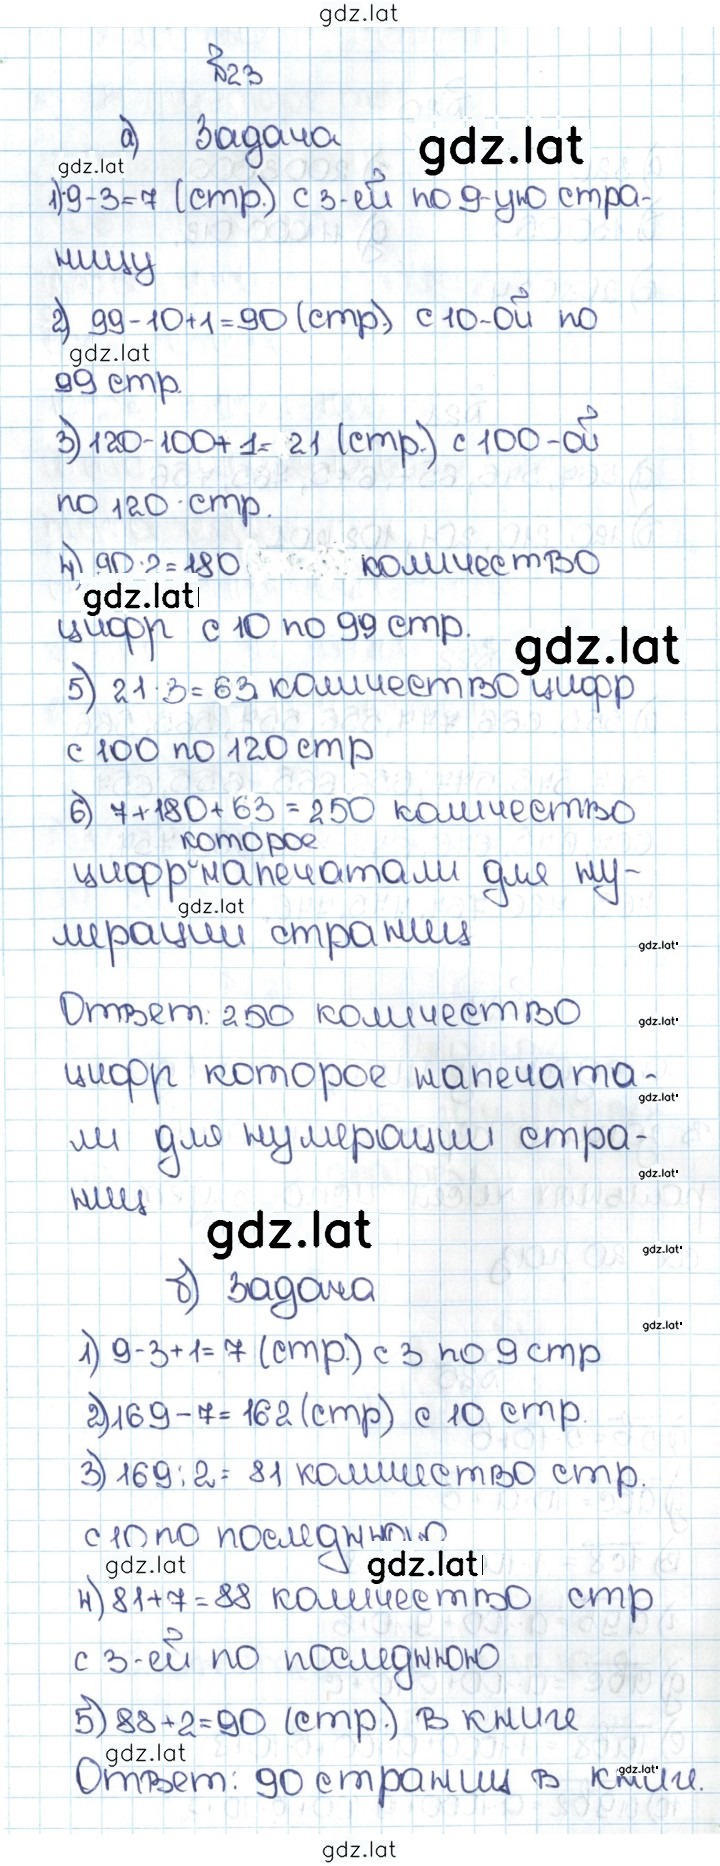 gdz.lat
№23
а) Задача
gdz.lat
gdz.lat
1) 9-3=7 (стр.) с 3-ей по 9-ую стра-
ницу
2) 99-10+1=90 (стр.) с 10-ой по
gdz.lat
99 стр.
3) 120-100+1= 21 (стр.) с 100-ой
по 120 стр.
4) 90·2=180 количество
gdz.lat
цифр с 10 по 99 стр.
gdz.lat
5) 21·3=63 количество цифр
с 100 по 120 стр
6) 7+180+63=250 количество
которое
цифр напечатали для ну-
gdz.lat
мерации страниц
gdz.lat
Ответ: 250 количество
gdz.lat
цифр которое напечата-
gdz.lat
ли для нумерации стра-
gdz.lat
ниц
gdz.lat
gdz.lat
б) Задача
gdz.lat
1) 9-3+1=7 (стр.) с 3 по 9 стр
2) 169-7=162 (стр) с 10 стр.
3) 169:2= 81 количество стр.
с 10 по последнюю
gdz.lat
gdz.lat
4) 81+7=88 количество стр
с 3-ей по последнюю
5) 88+2=90 (стр.) в книге
gdz.lat
gdz.lat
Ответ: 90 страниц в книге.
gdz.lat